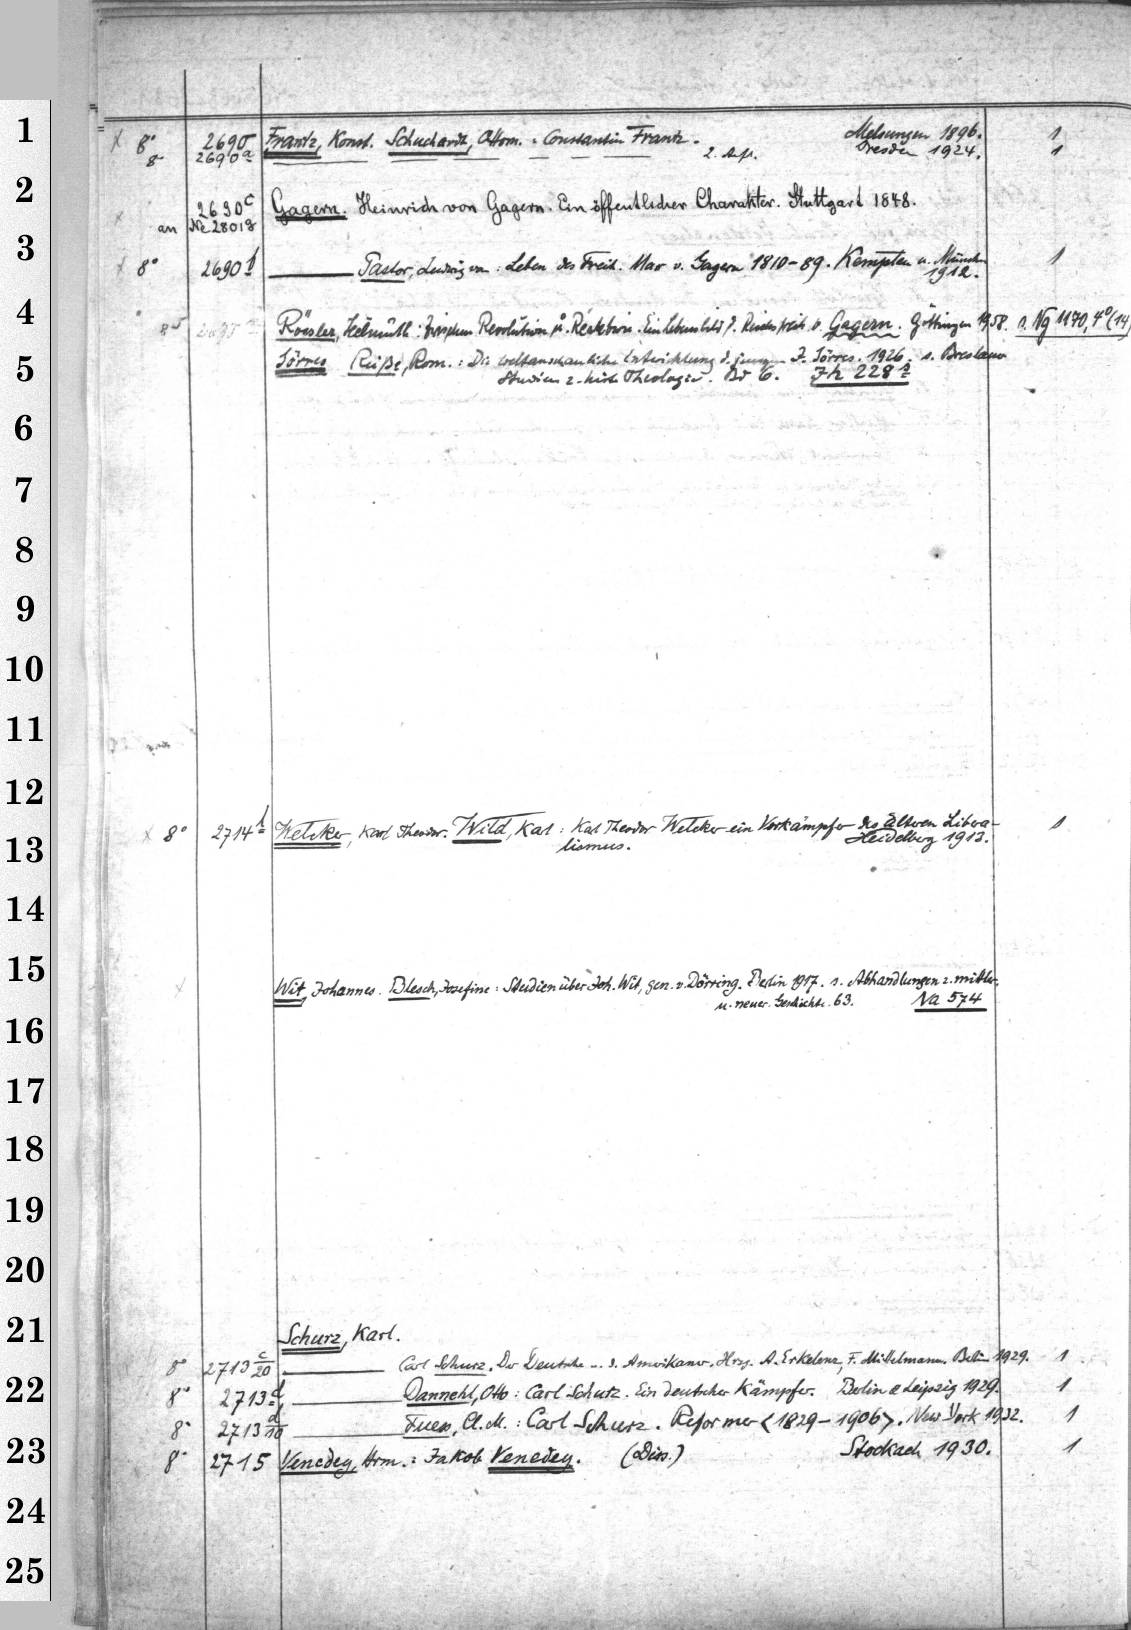 1
2
3
4
5
6
7
8
9
10
11
12
13
14
15
16
17
18
19
20
21
22
23
24
25
x 8° 2690 Frantz, Konst. Schuchardt, Ottom. : Constantin Frantz. Melsungen 1896. 1
8° 2690a — — — — 2. Aufl. Dresden 1924. 1
2690c Gagern. Heinrich von Gagern. Ein öffentlicher Charakter. Stuttgart 1848.
an Ne 28018
x 8° 2690d ——— Pastor, Ludwig von : Leben des Freih. Max v. Gagern 1810-89. Kempten u. München 1
1912.
8° Rössler, Hellmuth : Zwischen Revolution u. Reaktion. Ein Lebensbild d. Reichsfreih. v. Gagern. Göttingen 1958. s. Ng 1170, 4° (14)
Görres Reiße, Rom. : Die weltanschauliche Entwicklung d. jungen J. Görres. 1926. s. Breslauer
Studien z. hist. Theologie. Bd 6. Zh 228a
x 8° 2714h Welcker, Karl Theodor. Wild, Karl : Karl Theodor Welcker ein Vorkämpfer des älteren Libera- 1
lismus. Heidelberg 1913.
Wit, Johannes. Blesch, Josefine : Studien über Joh. Wit, gen. v. Dörring. Berlin 1917. s. Abhandlungen z. mittler.
u. neuer. Geschichte. 63. Na 574
Schurz, Karl.
8° 2713 c/20 ——— Carl Schurz. Der Deutsche u. d. Amerikaner. Hrsg. A. Erkelenz, F. Mittelmann. Berlin 1929. 1
8° 2713d ——— Dannehl, Otto : Carl Schurz. Ein deutscher Kämpfer. Berlin & Leipzig 1929. 1
8° 2713 d/10 ——— Fuess, C. M. : Carl Schurz. Reformer <1829-1906>. New York 1932. 1
8° 2715 Venedey, Hrm. : Jakob Venedey. (Diss.) Stockach 1930. 1